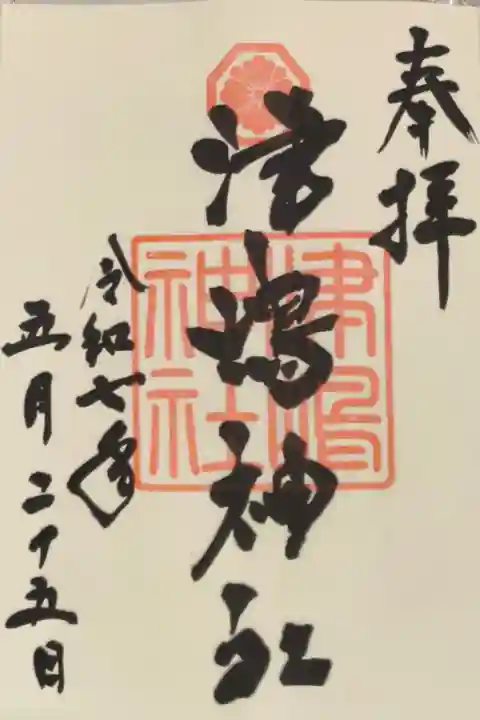 奉拝
津嶋神社
津嶋
神社
令和七年
五月二十五日